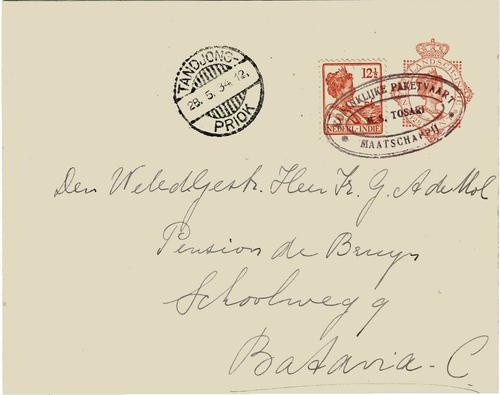 TANDJONG-
28. 5. 34. 12.
PRIOK
12½
NEDERL-INDIE
KONINKLIJKE PAKETVAART
M.S. TOSARI
MAATSCHAPPIJ
Den Weledelgestr. Heer Fr. G. A de Mol
Pension de Bruyn
Schoolweg 9
Batavia - C.